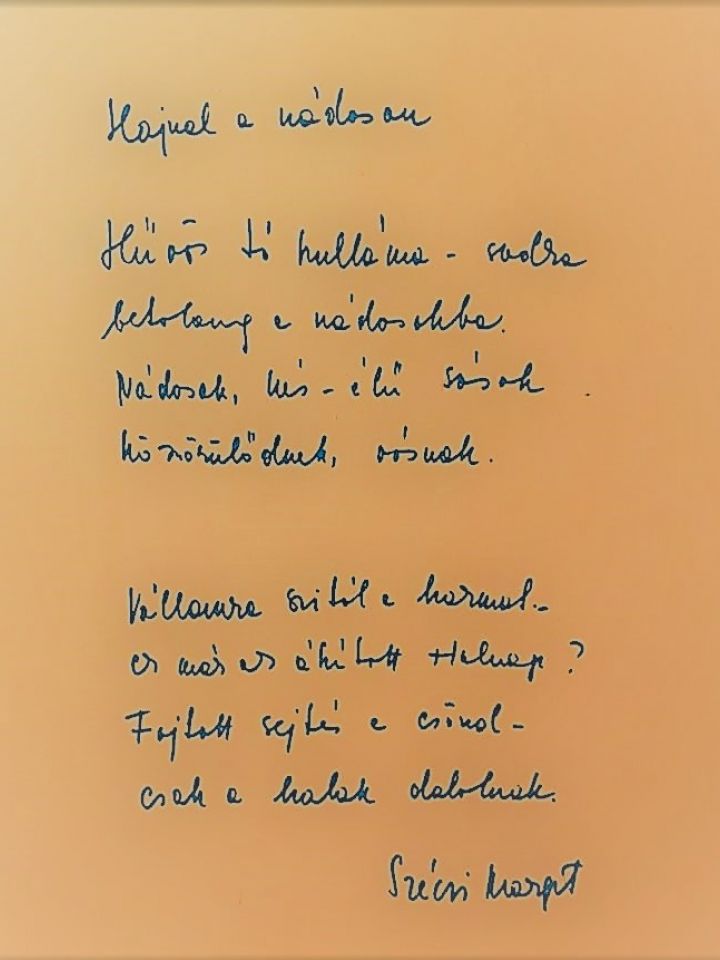 Hajnal a nádason
Hűvös tó hulláma - sodra
betolong a nádasokba.
Nádasok, kés-élű sások
köszörülődnek, vásnak.
Vállamra szitál a harmat -
ez már az áhított Holnap?
Fojtott sejtés a csönd -
csak a halak dalolnak.
Szécsi Margit